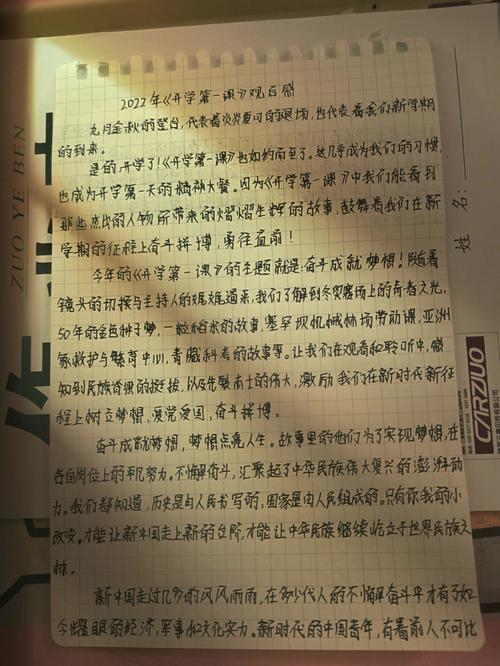 2022年《开学第一课》观后感
九月金秋的登台,代表着炎炎夏日的退场,也代表着我们新学期
的到来。
是的,开学了!《开学第一课》也如约而至了。这几乎成为我们的习惯,
也成为开学第一天的精神大餐。因为《开学第一课》中我们能看到
那些杰出的人物所带来的熠熠生辉的故事,鼓舞着我们在新
学期的征程上奋斗拼搏,勇往直前!
今年的《开学第一课》的主题就是:奋斗成就梦想!随着
镜头的切换与主持人的娓娓道来,我们了解到冬奥赛场上的青春之光,
50年的金色种子梦,一粒稻米的故事,塞罕坝机械林场劳动课,亚洲
象救护与繁育中心,青藏科考的故事等。让我们在观看和聆听中,感
知到民族脊梁的挺拔,以及先驱烈士的伟大,激励我们在新时代新征
程上树立梦想,爱党爱国,奋斗拼搏。
奋斗成就梦想,梦想点亮人生。故事里的他们为了实现梦想,在
各自岗位上的平凡努力。不懈奋斗,汇聚起了中华民族伟大复兴的澎湃动
力。我们都知道,历史是由人民书写的,国家是由人民组成的。只有你我的小
改变。才能让新中国走上新的台阶,才能让中华民族继续屹立于世界民族之
林。
新中国走过几多的风风雨雨,在多少代人的不懈奋斗中才有了如
今耀眼的经济,军事和文化实力。新时代的中国青年,有着前人不可比
ZUO YE BEN
姓名:
CARZUO